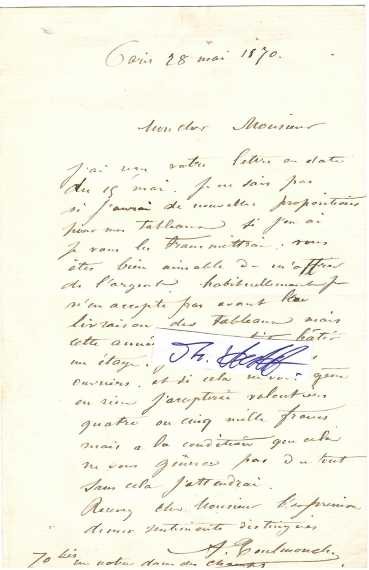 Paris 28 mai 1870.
Mon cher Monsieur
j'ai reçu votre lettre en date
du 15 mai. Je ne sais pas
si j'aurai de nouvelles propositions
pour mes tableaux si j'en ai
je vous les transmettrai, vous
êtes bien aimable de m'offrir
de l'argent habituellement je
n'en accepte pas avant la
livraison des tableaux mais
cette année bâtir
un étage.
ouvriers, et si cela ne vous gêne
en rien j'accepterai volontiers
quatre ou cinq mille francs
mais a la condition que cela
ne vous gênera pas du tout
sans cela j'attendrai.
Recevez cher Monsieur l'expression
de mes sentiments distingués
A. Toulmouche
70 bis rue notre dame des champs